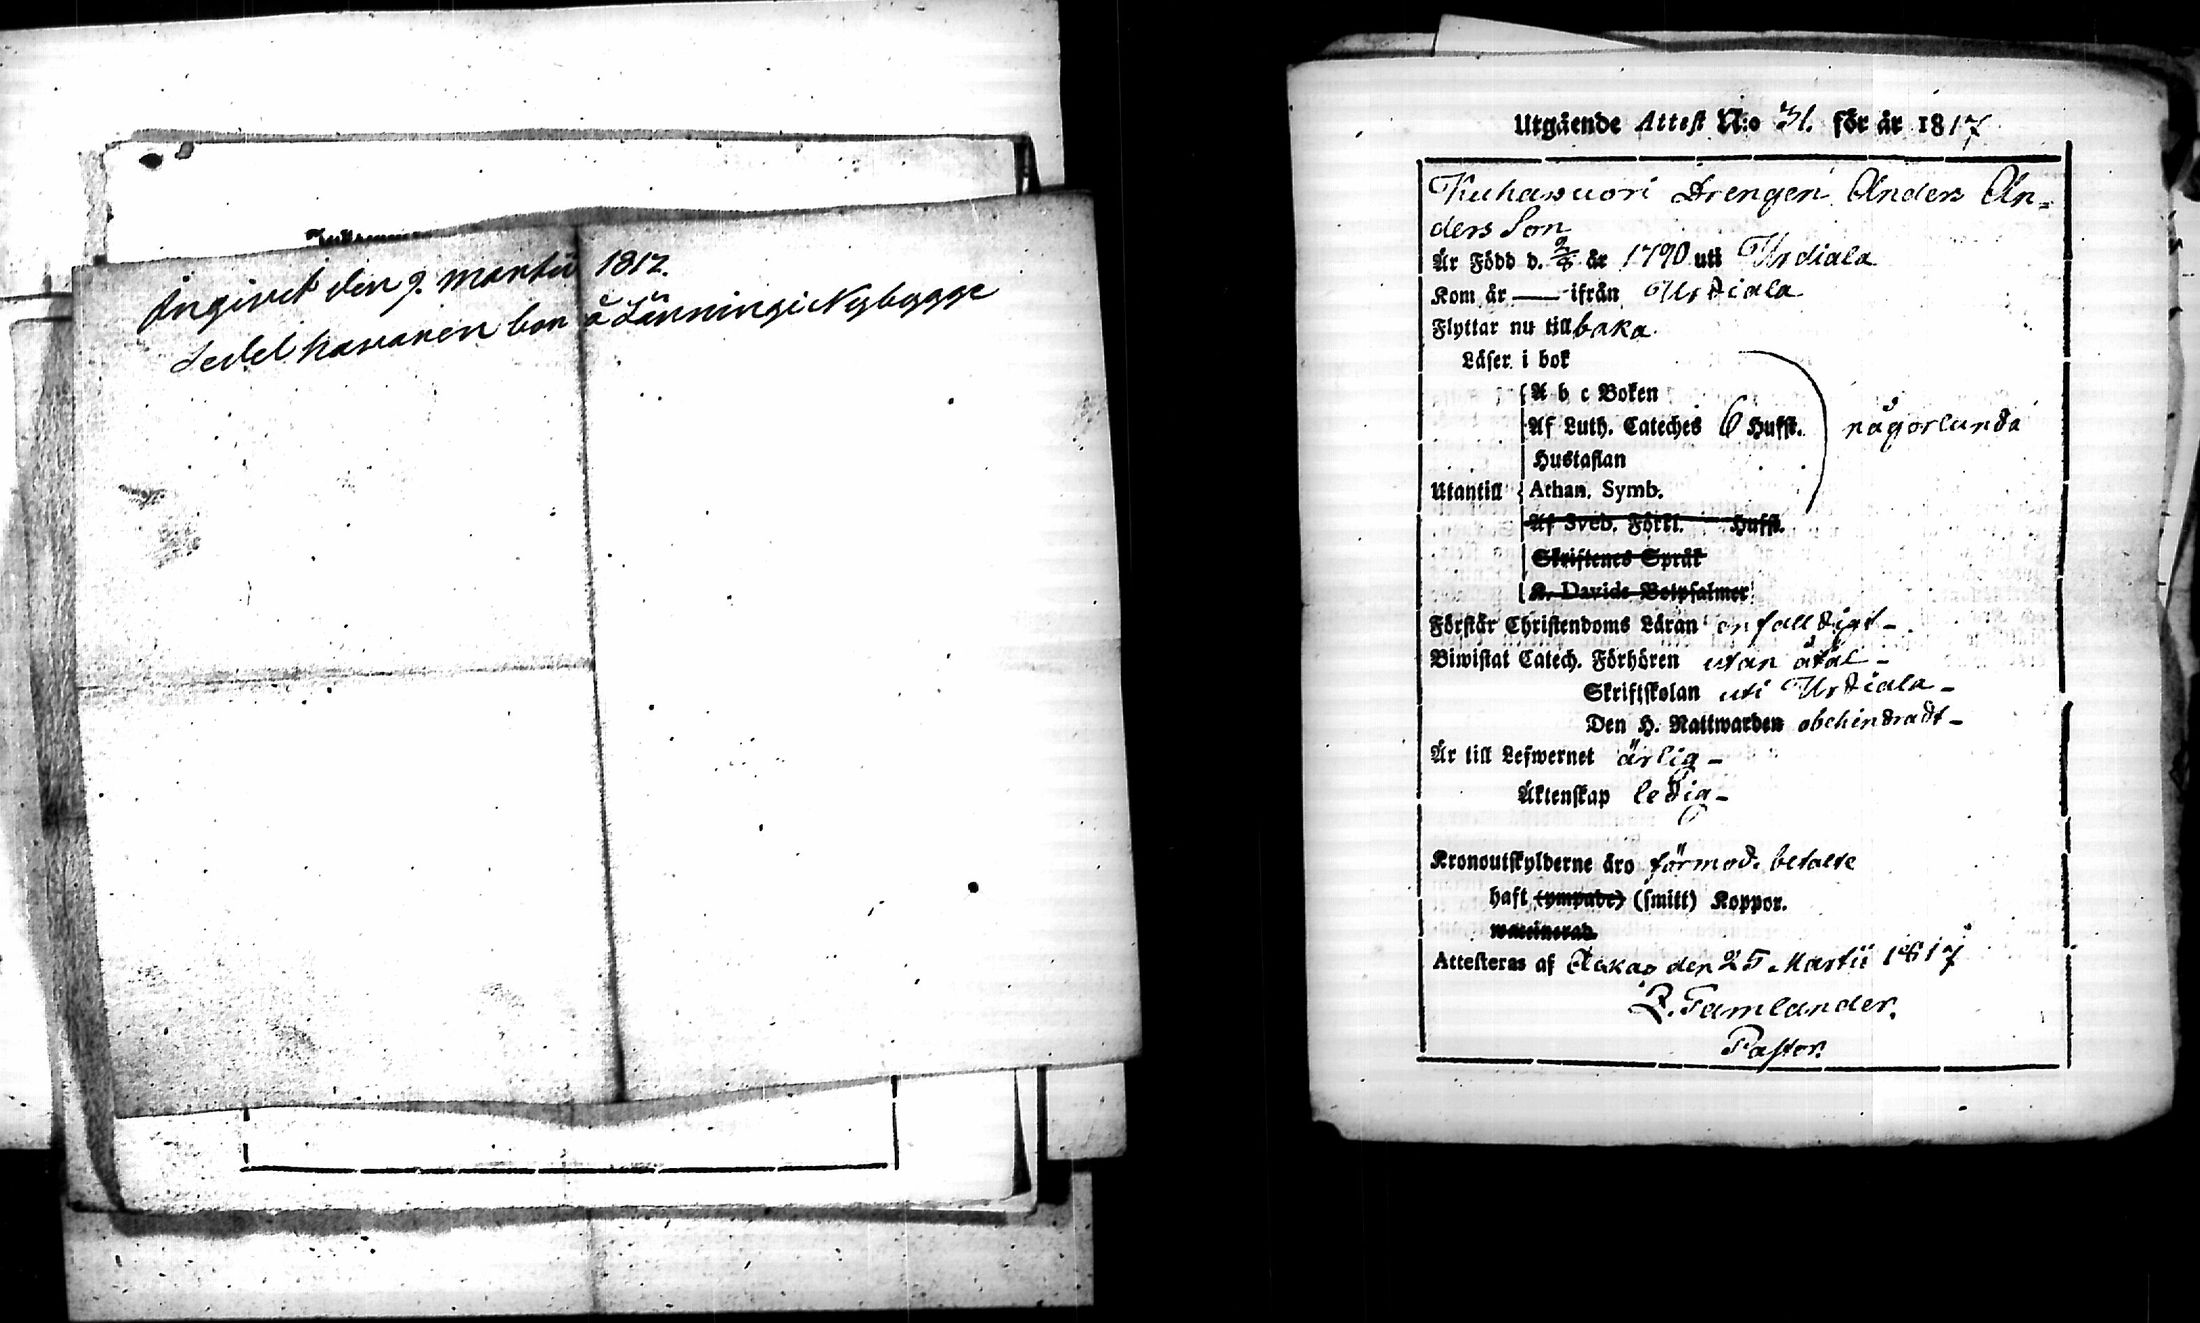 Ingivet den 9. Martii 1817.
Sedelhavaren bor å Länningi Nybygge
Utgående Attest N:o 31. för år 1817
Kuhasuori Drengen Anders An-
ders Son
Är Född d. 2/8 år 1790 uti Urdiala
Kom år — ifrån Urdiala
Flyttar nu tillbaka
Läser i bok
A b c Boken
Af Luth. Cateches 6 Hufst. någorlunda
Hustaflan
Utantill Athan. Symb.
Af Sveb. Förkl. Hufst.
Skriftenes Språk
K. Davids Botpsalmer
Förstår Christendoms Läran enfalldigt -
Biwistat Catech. Förhören utan åtal -
Skriftskolan uti Urdiala -
Den H. Nattwarden obehindradt -
Är till Lefwernet ärlig -
Äktenskap ledig -
Kronoutskylderne äro förmod. betalte
haft (ympade) (smitt) Koppor.
waccinerad.
Attesteras af Ackas den 25 Martii 1817
Z. Tamlander.
Pastor.